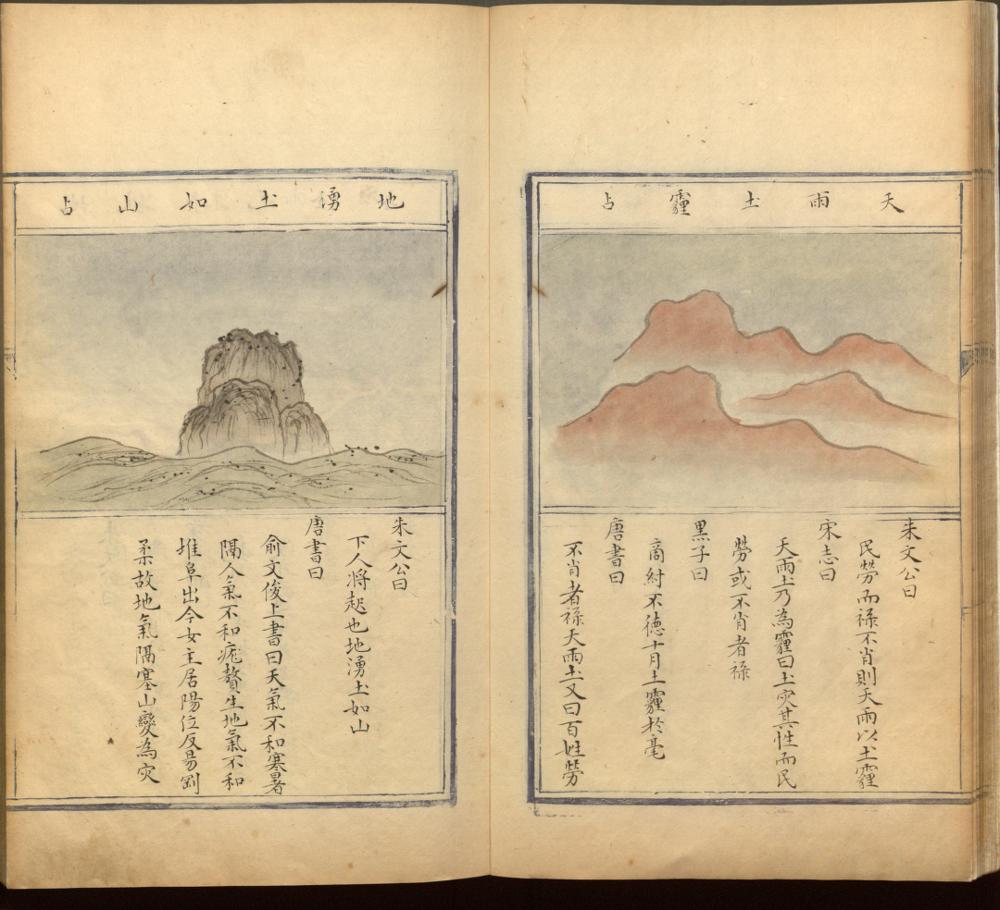 天雨土霾占
朱文公曰
民勞而祿不肖則天雨以土霾
宋志曰
天雨土乃為霾曰土灾其性而民
勞或不肖者祿
黑子曰
商紂不德十月土霾於亳
唐書曰
不肖者祿天雨土又曰百姓勞
地湧土如山占
朱文公曰
下人将起也地湧土如山
唐書曰
俞文俊上書曰天氣不和寒暑
隔人氣不和疣贅生地氣不和
堆阜出今女主居陽位反易剛
柔故地氣隔塞山變為灾